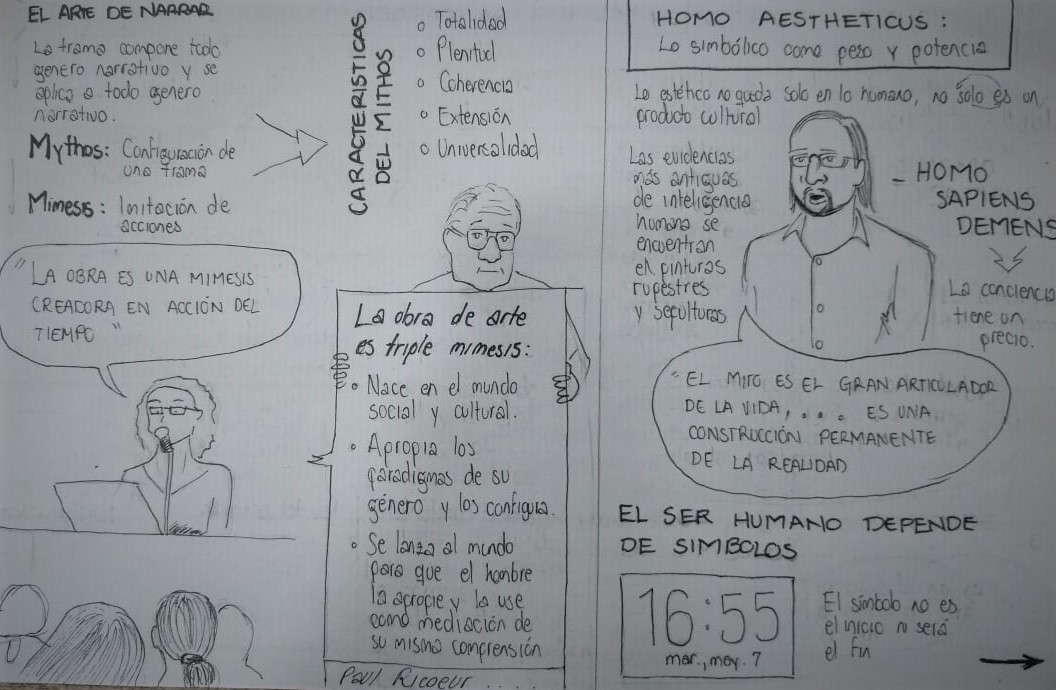 EL ARTE DE NARRAR
La trama compone todo
genero narrativo y se
aplica a todo genero
narrativo.
Mythos: Configuración de
una trama
Mimesis: Imitación de
acciones
"LA OBRA ES UNA MIMESIS
CREADORA EN ACCIÓN DEL
TIEMPO"
CARACTERISTICAS
DEL MITHOS
Totalidad
Plenitud
Coherencia
Extensión
Universalidad
La obra de arte
es triple mimesis:
Nace en el mundo
social y cultural.
Apropia los
paradigmas de su
género y los configura.
Se lanza al mundo
para que el hombre
la apropie y la use
como mediación de
su misma comprensión
Paul Ricoeur ....
HOMO AESTHETICUS:
Lo simbólico como peso y potencia
Lo estético no queda solo en lo humano, no solo es un
producto cultural
Las evidencias
más antiguas
de inteligencia
humana se
encuentran
en pinturas
rupestres
y sepulturas
= HOMO
SAPIENS
DEMENS
La conciencia
tiene un
precio.
"EL MITO ES EL GRAN ARTICULADOR
DE LA VIDA, ... ES UNA
CONSTRUCCIÓN PERMANENTE
DE LA REALIDAD
EL SER HUMANO DEPENDE
DE SIMBOLOS
16:55
mar., may. 7
El símbolo no es
el inicio ni será
el fin